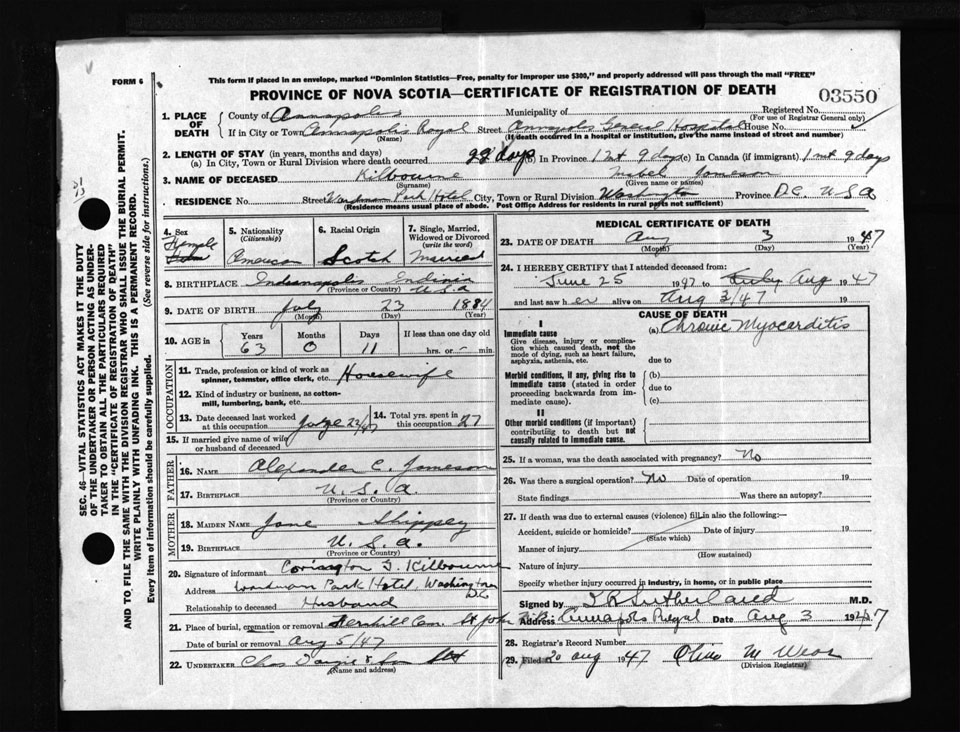 This form if placed in an envelope, marked "Dominion Statistics—Free, penalty for improper use $300," and properly addressed will pass through the mail "FREE"
FORM 6
PROVINCE OF NOVA SCOTIA—CERTIFICATE OF REGISTRATION OF DEATH
03550
1. PLACE OF DEATH
County of Annapolis Municipality of Registered No.
(For use of Registrar General only)
If in City or Town Annapolis Royal Street Annapolis General Hospital House No.
(Name) (If death occurred in a hospital or institution, give the name instead of street and number)
2. LENGTH OF STAY (in years, months and days)
(a) In City, Town or Rural Division where death occurred 22 days (b) In Province 1 mt 9 days (c) In Canada (if immigrant) 1 mt 9 days
3. NAME OF DECEASED Kilbourne Mabel Jameson
(Surname) (Given name or names)
RESIDENCE No. Street Wardman Park Hotel City, Town or Rural Division Washington Province D.C. U.S.A
(Residence means usual place of abode. Post Office Address for residents in rural parts not sufficient)
SEC. 46—VITAL STATISTICS ACT MAKES IT THE DUTY
OF THE UNDERTAKER OR PERSON ACTING AS UNDER-
TAKER TO OBTAIN ALL THE PARTICULARS REQUIRED
IN THE "CERTIFICATE OF REGISTRATION OF DEATH"
AND TO FILE THE SAME WITH THE DIVISION REGISTRAR WHO SHALL ISSUE THE BURIAL PERMIT.
WRITE PLAINLY WITH UNFADING INK. THIS IS A PERMANENT RECORD.
Every item of information should be carefully supplied. (See reverse side for instructions.)
4. Sex
Female
5. Nationality
(Citizenship)
American
6. Racial Origin
Scotch
7. Single, Married, Widowed or Divorced
(write the word)
Married
8. BIRTHPLACE Indianapolis Indiana
(Province or Country) U.S.A
9. DATE OF BIRTH July 23 1884
(Month) (Day) (Year)
10. AGE in Years Months Days If less than one day old
63 0 11 hrs. or min.
OCCUPATION
11. Trade, profession or kind of work as
spinner, teamster, office clerk, etc. Housewife
12. Kind of industry or business, as cotton-
mill, lumbering, bank, etc.
13. Date deceased last worked
at this occupation 22/47
14. Total yrs. spent in
this occupation 27
15. If married give name of wife
or husband of deceased
FATHER
16. NAME Alexander C. Jameson
17. BIRTHPLACE U.S.A.
(Province or Country)
MOTHER
18. MAIDEN NAME Jane Shippey
19. BIRTHPLACE U.S.A.
(Province or Country)
20. Signature of informant Covington G. Kilbourne
Address Wardman Park Hotel, Washington D.C.
Relationship to deceased Husband
21. Place of burial, cremation or removal Fernhill Cem. St John
Date of burial or removal Aug 5/47
22. UNDERTAKER Chas & Son
(Name and address)
MEDICAL CERTIFICATE OF DEATH
23. DATE OF DEATH Aug 3 1947
(Month) (Day) (Year)
24. I HEREBY CERTIFY that I attended deceased from:
June 25 1947 to July Aug 47
and last saw her alive on Aug 3/47 19
CAUSE OF DEATH
I
Immediate cause (a) Chronic Myocarditis
Give disease, injury or complica-
tion which caused death, not the
mode of dying, such as heart failure,
asphyxia, asthenia, etc. due to
Morbid conditions, if any, giving rise to (b)
immediate cause (stated in order due to
proceeding backwards from im-
mediate cause). (c)
II
Other morbid conditions (if important)
contributing to death but not
causally related to immediate cause.
25. If a woman, was the death associated with pregnancy? No
26. Was there a surgical operation? No Date of operation 19
State findings Was there an autopsy?
27. If death was due to external causes (violence) fill in also the following:—
Accident, suicide or homicide? Date of injury 19
(State which)
Manner of injury
(How sustained)
Nature of injury
Specify whether injury occurred in industry, in home, or in public place
Signed by I R Sutherland M.D.
Address Annapolis Royal Date Aug 3 1947
28. Registrar's Record Number
29. Filed 20 Aug 1947 Olive M Wear
(Division Registrar)